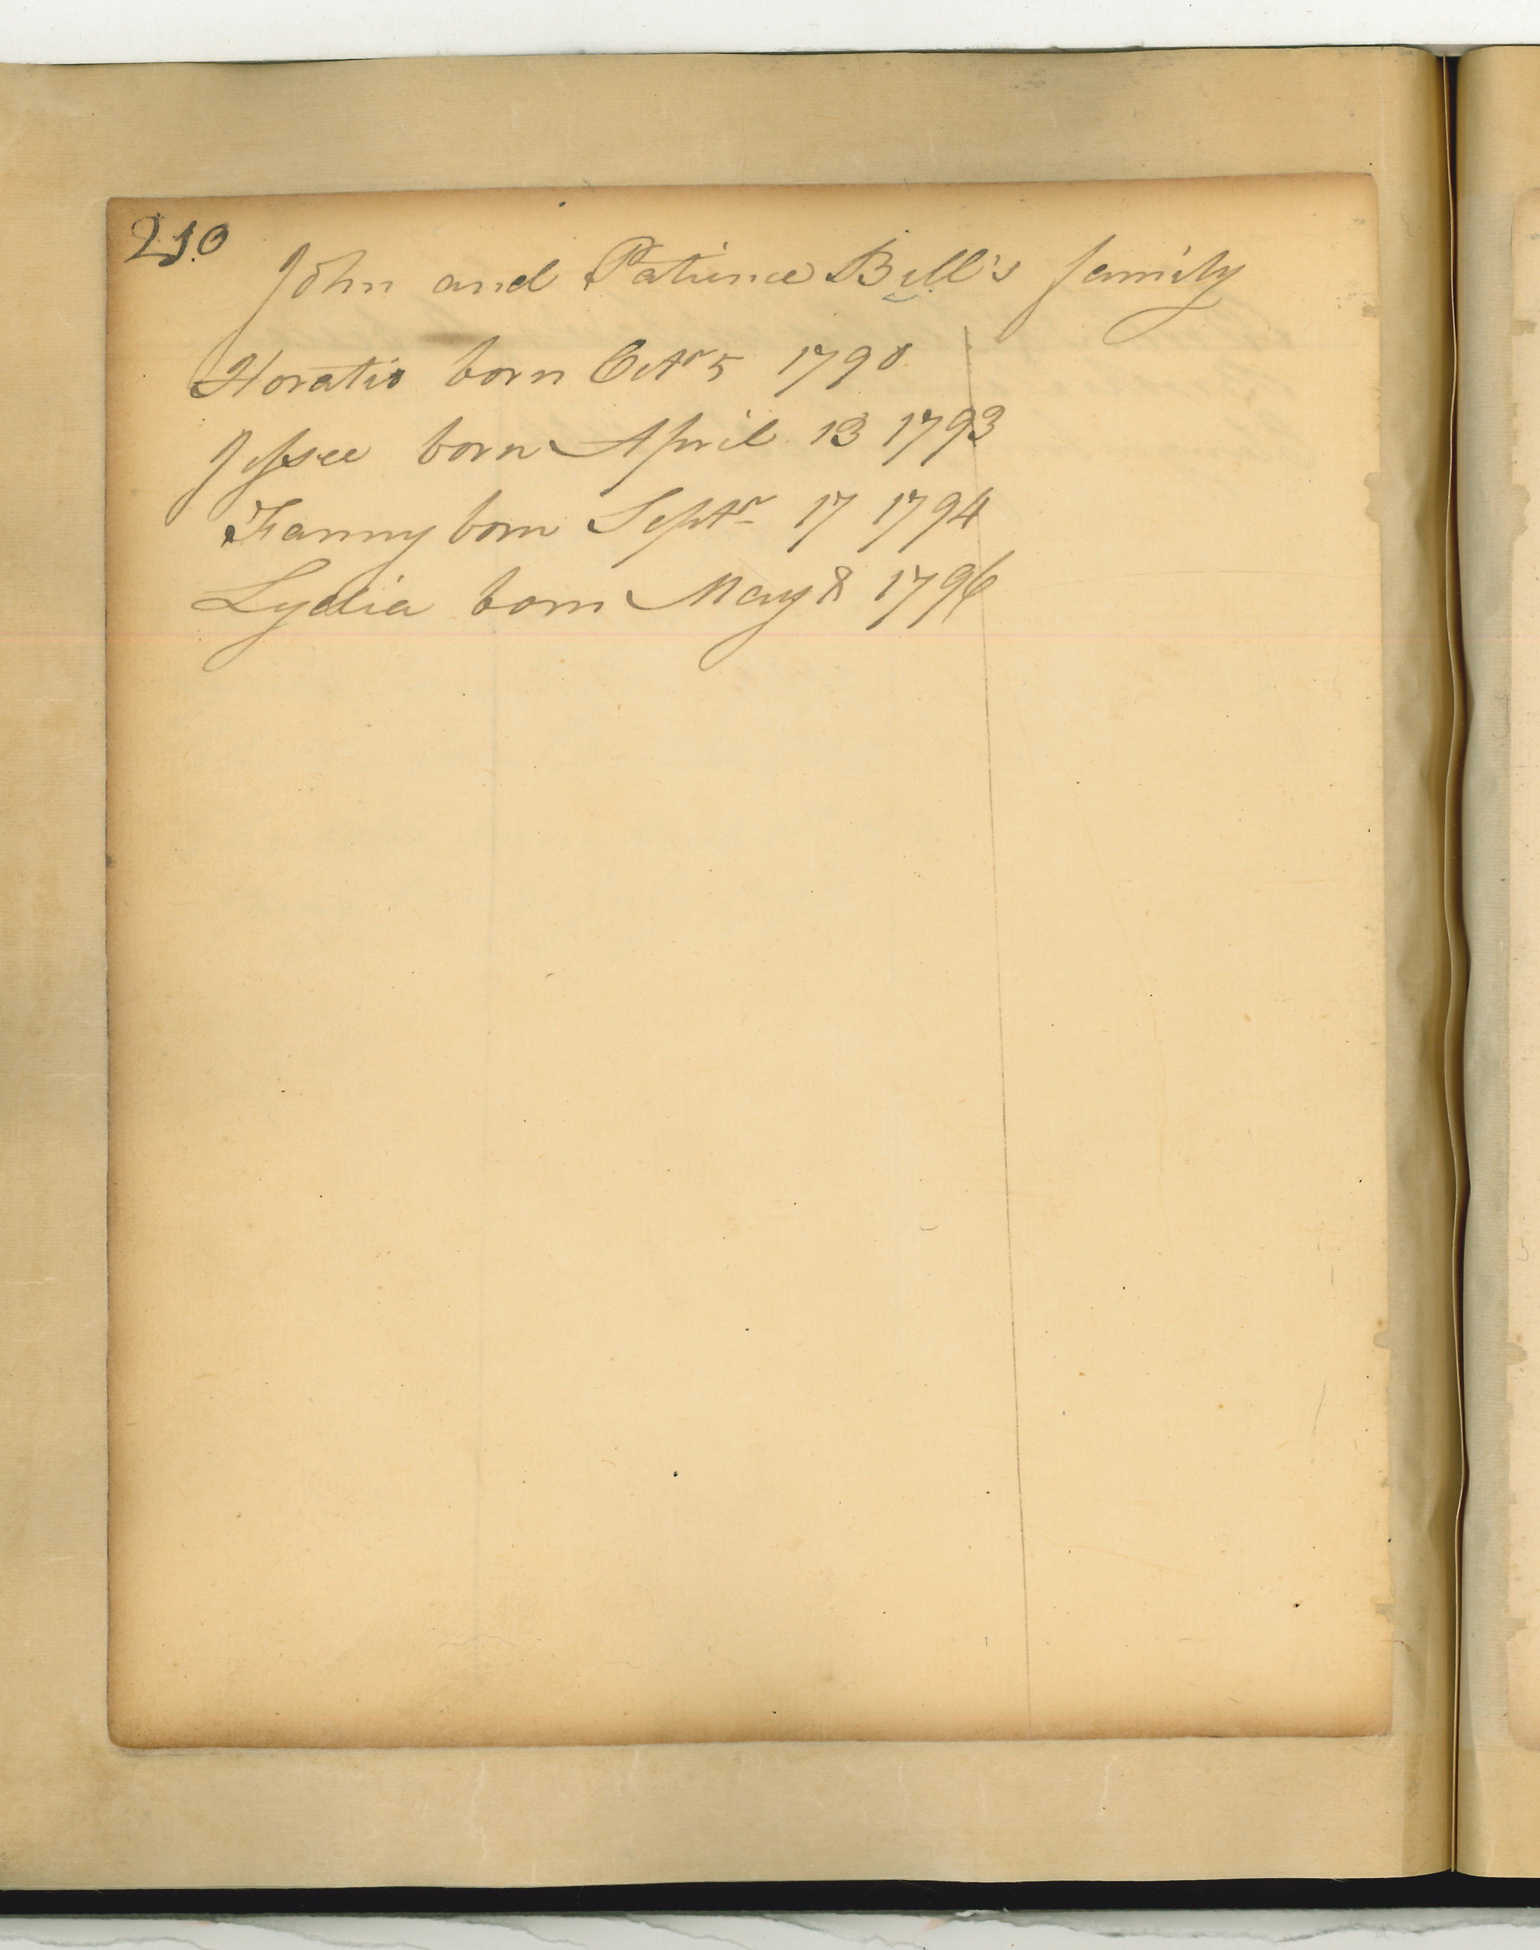 210
John and Patience Bill's family
Horatio born Octr 5 1790
Jessee born April 13 1793
Fanny born Septr 17 1794
Lydia born May 8 1796